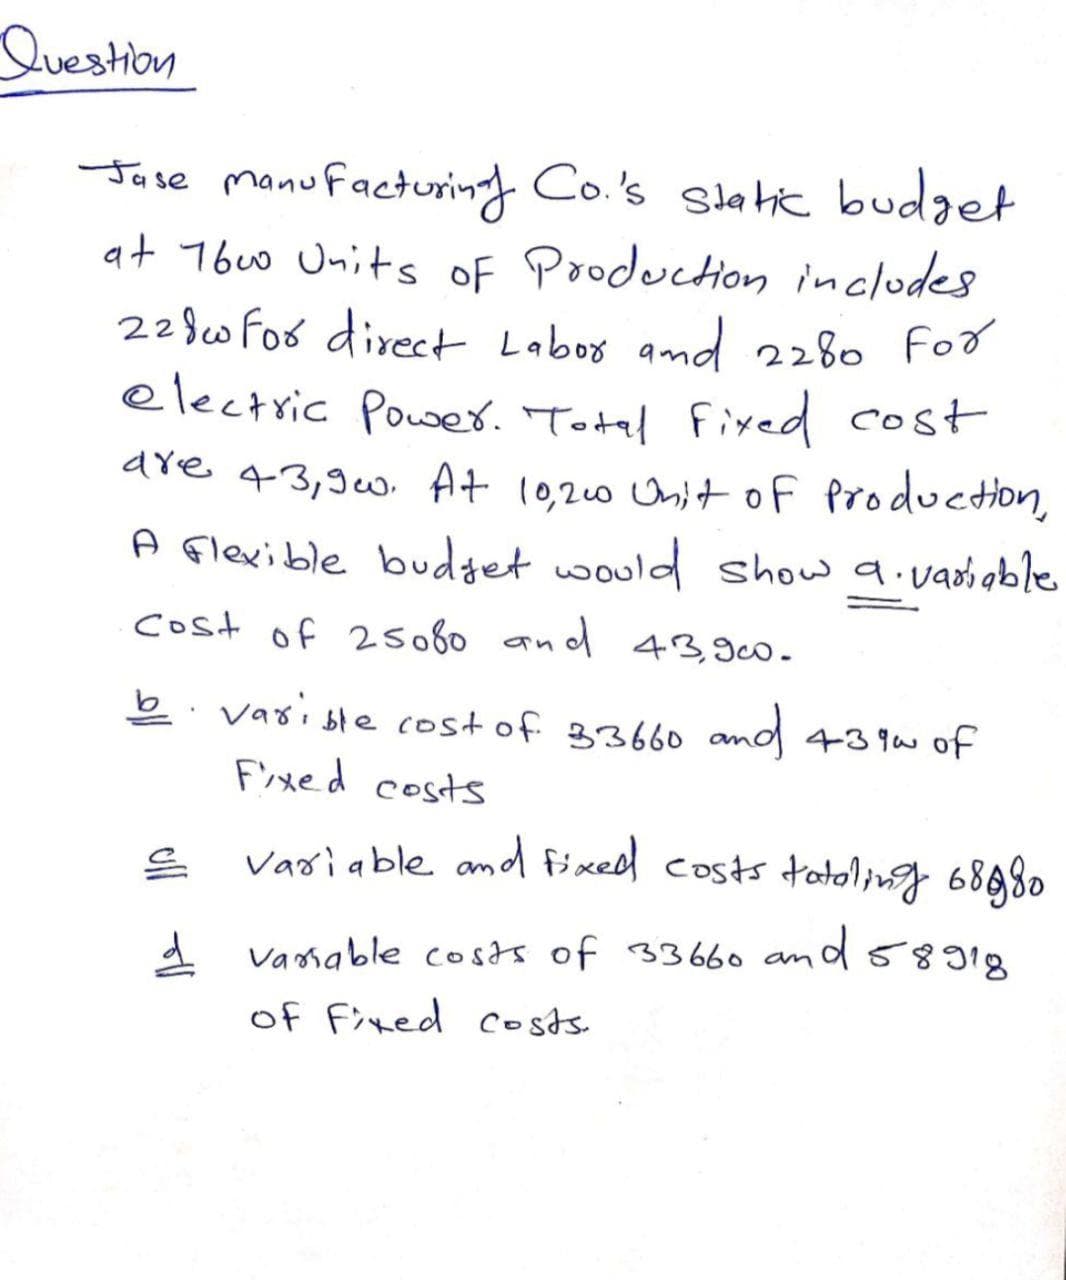 Question
Jase manufacturing Co.'s static budget
at 7600 Units of Production includes
22800 For direct Labor and 2280 For
electric Power. Total Fixed cost
are 43,900. At 10,200 Unit of Production,
A Flexible budget would show a. variable
cost of 25080 and 43,900.
b. varible cost of 33660 and 43900 of
Fixed costs
c variable and fixed costs totaling 68980
d variable costs of 33660 and 58918
of Fixed costs.